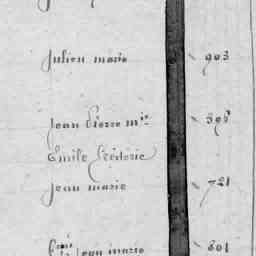 Julien marie 903
Jean Pierre mie 595
Emile Frédéric
Jean marie 721
fois Jean marie 801